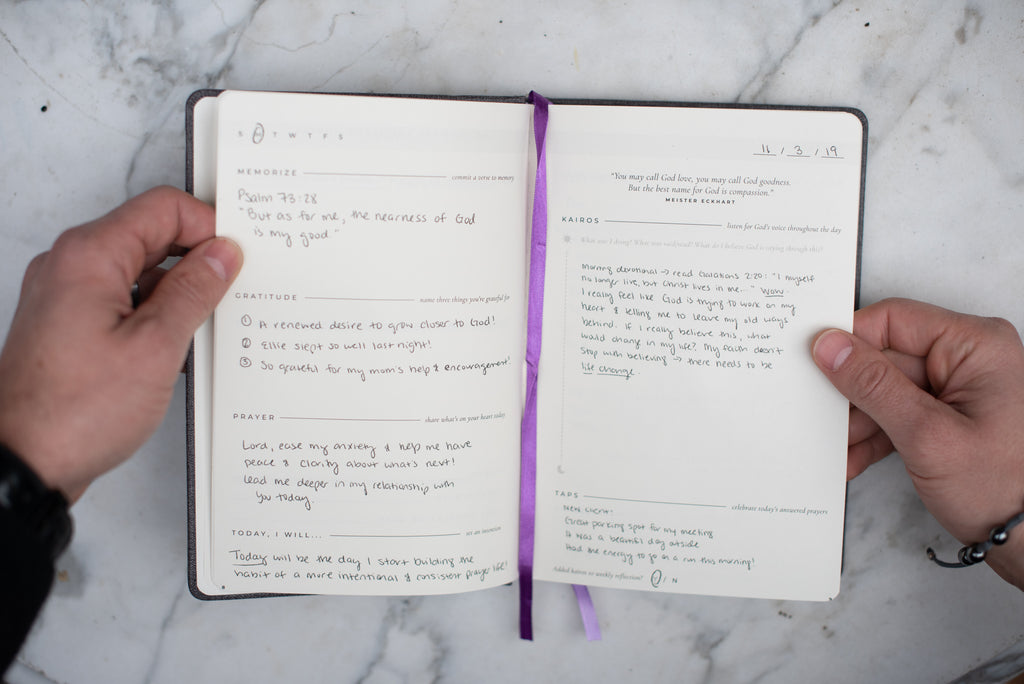 S M T W T F S
MEMORIZE commit a verse to memory
Psalm 73:28
"But as for me, the nearness of God
is my good."
GRATITUDE name three things you're grateful for
① A renewed desire to grow closer to God!
② Ellie slept so well last night!
③ So grateful for my mom's help & encouragement!
PRAYER share what's on your heart today
Lord, ease my anxiety & help me have
peace & clarity about what's next!
Lead me deeper in my relationship with
you today.
TODAY, I WILL... set an intention
Today will be the day I start building the
habit of a more intentional & consistent prayer life!
11 / 3 / 19
"You may call God love, you may call God goodness.
But the best name for God is compassion."
MEISTER ECKHART
KAIROS listen for God's voice throughout the day
What am I doing? What was said/read? What do I believe God is saying through this?
Morning devotional → read Galatians 2:20: "I myself
no longer live, but Christ lives in me..." Wow.
I really feel like God is trying to work on my
heart & telling me to leave my old ways
behind. If I really believe this, what
would change in my life? My faith doesn't
stop with believing → there needs to be
life change.
TAPS celebrate today's answered prayers
New client!
Great parking spot for my meeting
It was a beautiful day outside
Had the energy to go on a run this morning!
Added kairos to weekly reflection? Y / N